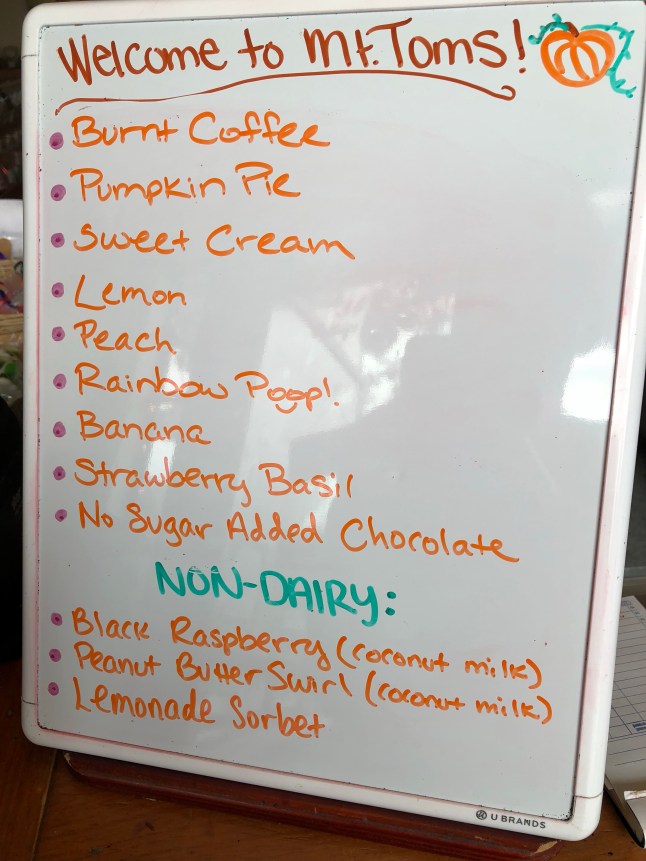 Welcome to Mt. Toms!
Burnt Coffee
Pumpkin Pie
Sweet Cream
Lemon
Peach
Rainbow Poop!
Banana
Strawberry Basil
No Sugar Added Chocolate
NON-DAIRY:
Black Raspberry (coconut milk)
Peanut Butter Swirl (coconut milk)
Lemonade Sorbet
U BRANDS